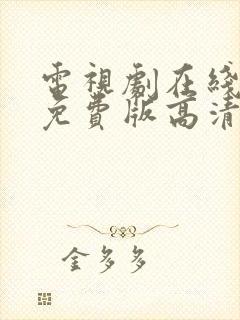 電視劇在綫
免費版高清
金多多